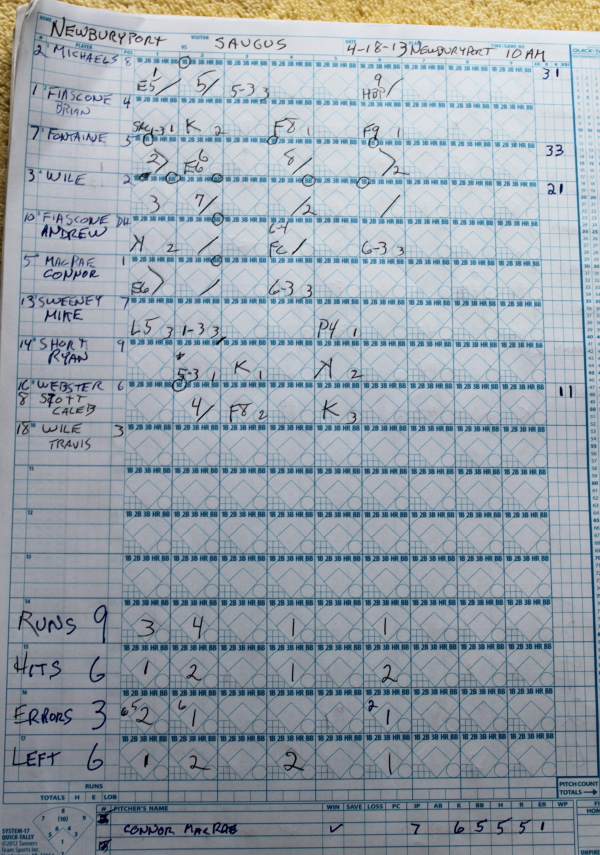 HOME VISITOR DATE TIME/GAME NO. QUICK-TA
NEWBURYPORT VS SAUGUS 4-18-13 NEWBURYPORT 10 AM
# PLAYER POS
2 MICHAELS 8 E5 5 5-3 3 9 HBP 31
1 FIASCONE BRIAN 4 SAC 1-3 1 K 2 F8 1 F9 1
7 FONTAINE 5 2 6 E6 8 2 33
3 WILE 2 3 7 2 21
10 FIASCONE ANDREW DH K 2 6-4 FC 6-3 3
5 MACRAE CONNOR 1 E6 6-3 3
13 SWEENEY MIKE 7 L5 3 1-3 3 P4 1
14 SHORT RYAN 9 5-3 1 K 1 K 2
16 WEBSTER 6 4 F8 2 K 3 11
8 SCOTT CALEB
18 WILE TRAVIS 3
11
12
13
14
RUNS 9 3 4 1 1
15
HITS 6 1 2 1 2
16
ERRORS 3 65 2 6 1 2 1
17
LEFT 6 1 2 2 1
RUNS
TOTALS H E LOB
PITCH COUNT
TOTALS
# PITCHER'S NAME WIN SAVE LOSS PC IP AB K BB H R ER WP
CONNOR MACRAE ✓ 7 6 5 5 5 1
SYSTEM-17
QUICK-TALLY
©2012 Tanners
Team Sports Inc.